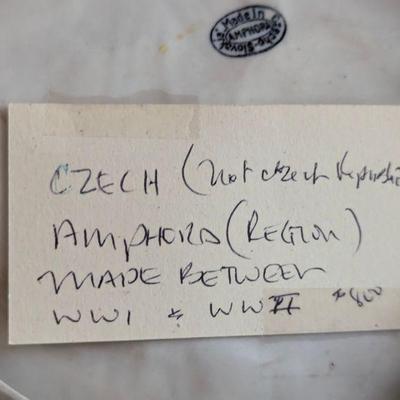 Made In
AMPHORA
Czecho-Slovakia
CZECH (Not Czech Republic
AMPHORA (REGION)
MADE BETWEEN
WWI & WWII $800